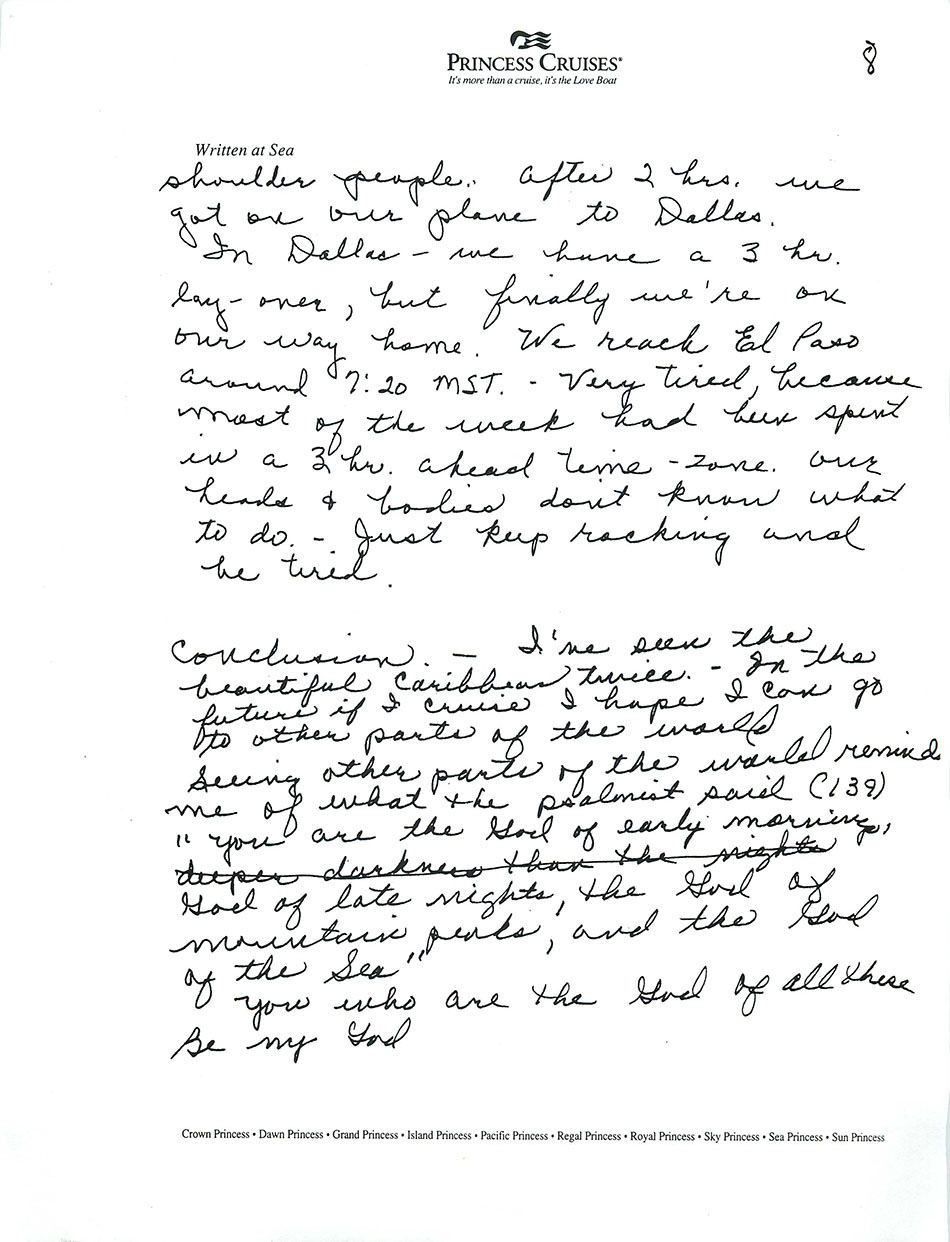 PRINCESS CRUISES®
It's more than a cruise, it's the Love Boat
8
Written at Sea
shoulder people. After 2 hrs. we
got on our plane to Dallas.
In Dallas - we have a 3 hr.
lay-over, but finally we're on
our way home. We reach El Paso
around 7:20 MST. - Very tired, because
most of the week had been spent
in a 3 hr. ahead time-zone. Our
heads & bodies don't know what
to do. - Just keep rocking and
be tired.
Conclusion. - I've seen the
beautiful Caribbean twice. - In the
future if I cruise I hope I can go
to other parts of the world
Seeing other parts of the world reminds
me of what the psalmist said (139)
"You are the God of early morning,
deeper darkness than the nights
God of late nights, the God of
mountain peaks, and the God
of the Sea"
You who are the God of all these
Be my God
Crown Princess • Dawn Princess • Grand Princess • Island Princess • Pacific Princess • Regal Princess • Royal Princess • Sky Princess • Sea Princess • Sun Princess